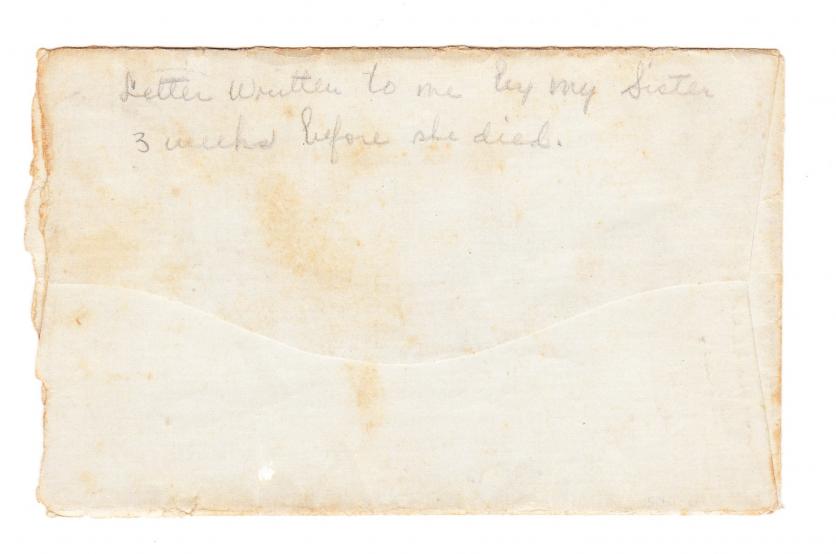 Letter Written to me by my Sister
3 weeks before she died.